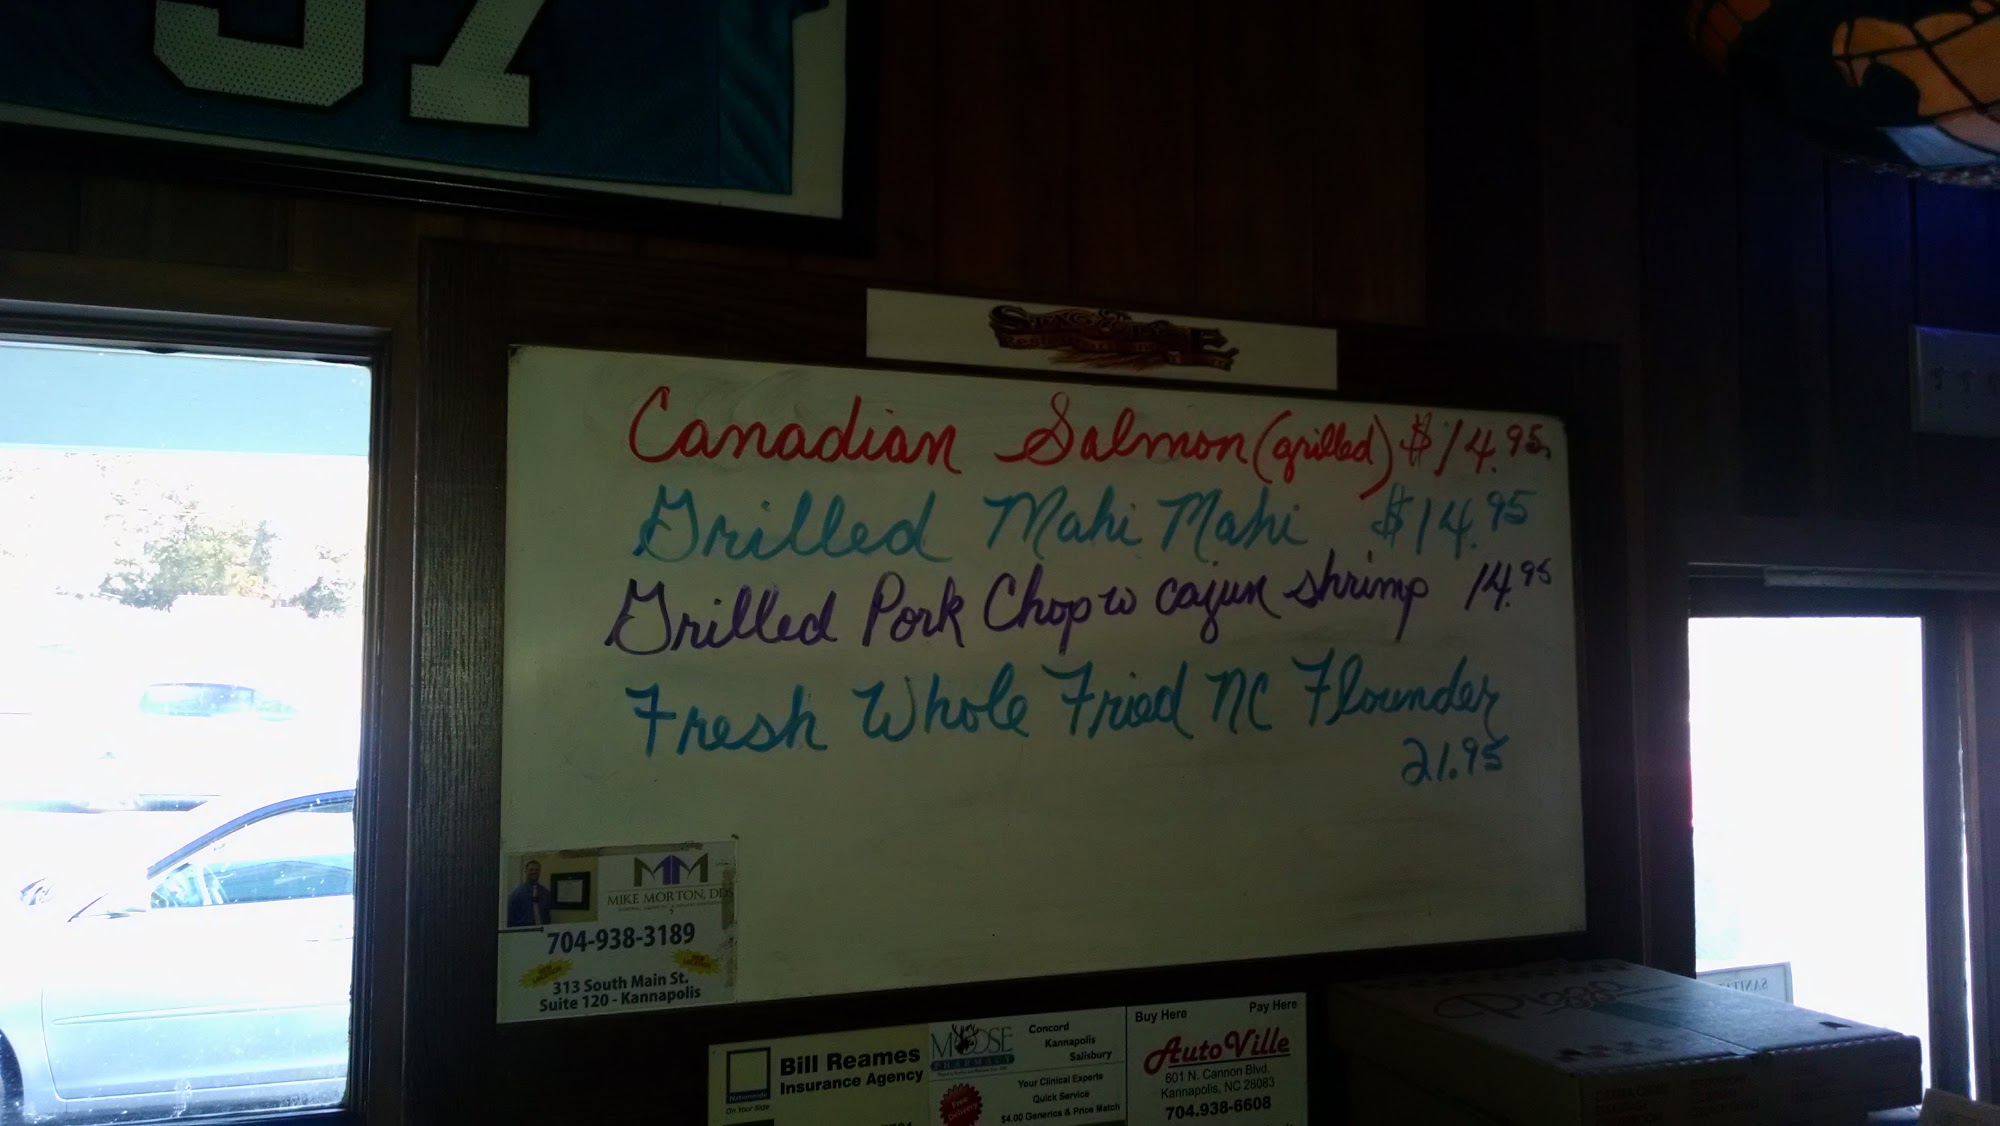 57
Canadian Salmon (grilled) $14.95
Grilled Mahi Mahi $14.95
Grilled Pork Chop w cajun shrimp 14.95
Fresh Whole Fried NC Flounder
21.95
MM
MIKE MORTON, DDS
704-938-3189
313 South Main St.
Suite 120 - Kannapolis
Bill Reames
Insurance Agency
Nationwide
On Your Side
MOOSE
PHARMACY
Concord
Kannapolis
Salisbury
Free
Delivery
Your Clinical Experts
Quick Service
$4.00 Generics & Price Match
Buy Here
Pay Here
AutoVille
601 N. Cannon Blvd.
Kannapolis, NC 28083
704.938-6608
Pizza